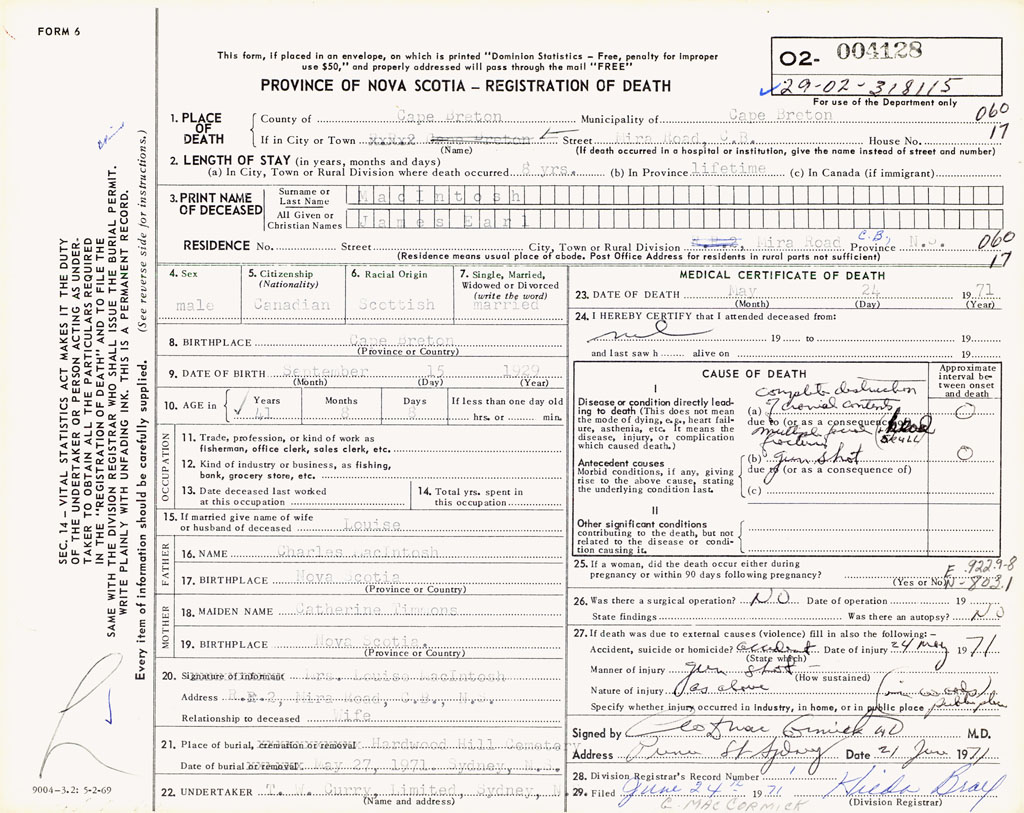 FORM 6
This form, if placed in an envelope, on which is printed "Dominion Statistics – Free, penalty for improper
use $50," and properly addressed will pass through the mail "FREE"
PROVINCE OF NOVA SCOTIA – REGISTRATION OF DEATH
02- 004128
29-02-318115
For use of the Department only
1. PLACE OF DEATH
County of Cape Breton Municipality of Cape Breton 060
If in City or Town Street Mira Road, C.B. House No. 17
(Name) (If death occurred in a hospital or institution, give the name instead of street and number)
2. LENGTH OF STAY (in years, months and days)
(a) In City, Town or Rural Division where death occurred 8 yrs. (b) In Province lifetime (c) In Canada (if immigrant)
3. PRINT NAME OF DECEASED
Surname or Last Name MacIntosh
All Given or Christian Names James Earl
RESIDENCE No. Street City, Town or Rural Division R.R.2, Mira Road C.B. Province N.S. 060
(Residence means usual place of abode. Post Office Address for residents in rural parts not sufficient) 17
4. Sex male
5. Citizenship (Nationality) Canadian
6. Racial Origin Scottish
7. Single, Married, Widowed or Divorced (write the word) married
8. BIRTHPLACE Cape Breton
(Province or Country)
9. DATE OF BIRTH September 15 1929
(Month) (Day) (Year)
10. AGE in Years 41 Months 8 Days 8 If less than one day old hrs. or min.
OCCUPATION
11. Trade, profession, or kind of work as
fisherman, office clerk, sales clerk, etc.
12. Kind of industry or business, as fishing,
bank, grocery store, etc.
13. Date deceased last worked at this occupation
14. Total yrs. spent in this occupation
15. If married give name of wife
or husband of deceased Louise
FATHER
16. NAME Charles MacIntosh
17. BIRTHPLACE Nova Scotia
(Province or Country)
MOTHER
18. MAIDEN NAME Catherine Timmons
19. BIRTHPLACE Nova Scotia.
(Province or Country)
20. Signature of informant Mrs. Louise MacIntosh
Address R.R.2, Mira Road, C.B., N.S.
Relationship to deceased Wife
21. Place of burial, cremation or removal Hardwood Hill Cemetery
Date of burial or removal May 27, 1971. Sydney, N.S.
22. UNDERTAKER T. W. Curry, limited, Sydney, N.
(Name and address)
MEDICAL CERTIFICATE OF DEATH
23. DATE OF DEATH May 24 1971
(Month) (Day) (Year)
24. I HEREBY CERTIFY that I attended deceased from:
nil 19 to 19
and last saw h alive on 19
CAUSE OF DEATH
Approximate interval between onset and death
I
Disease or condition directly leading to death (This does not mean the mode of dying, e.g., heart failure, asthenia, etc. It means the disease, injury, or complication which caused death.)
(a) complete destruction of cranial contents
due to (or as a consequence of)
multiple fractures SKULL
Antecedent causes
Morbid conditions, if any, giving rise to the above cause, stating the underlying condition last.
(b) gun shot
due to (or as a consequence of)
(c)
II
Other significant conditions
contributing to the death, but not related to the disease or condition causing it.
25. If a woman, did the death occur either during
pregnancy or within 90 days following pregnancy?
(Yes or No)
E 922.9-8
N-803.1
26. Was there a surgical operation? NO Date of operation 19
State findings Was there an autopsy? NO
27. If death was due to external causes (violence) fill in also the following: –
Accident, suicide or homicide? accident Date of injury 24 May 1971
(State which)
Manner of injury gun shot
(How sustained)
Nature of injury as above (in woods)
Specify whether injury occurred in industry, in home, or in public place public place
Signed by M.D.
Address Prince St Sydney Date 21 June 1971
28. Division Registrar's Record Number 1
29. Filed June 24th 1971 Hilda Bray
(Division Registrar)
C. MACCORMICK
SEC. 14 – VITAL STATISTICS ACT MAKES IT THE DUTY
OF THE UNDERTAKER OR PERSON ACTING AS UNDER-
TAKER TO OBTAIN ALL THE PARTICULARS REQUIRED
IN THE "REGISTRATION OF DEATH" AND TO FILE THE
SAME WITH THE DIVISION REGISTRAR WHO SHALL ISSUE THE BURIAL PERMIT.
WRITE PLAINLY WITH UNFADING INK. THIS IS A PERMANENT RECORD.
Every item of information should be carefully supplied. (See reverse side for instructions.)
9004-3.2: 5-2-69